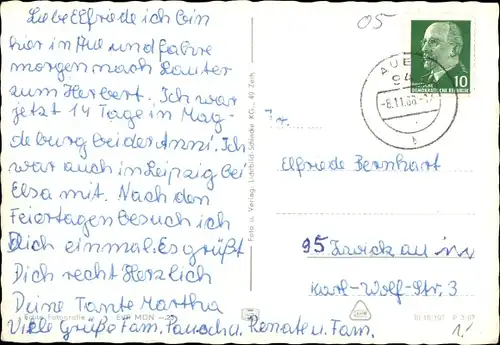 Liebe Elfriede ich bin
hier in Aue und fahre
morgen nach Lauter
zum Herbert. Ich war
jetzt 14 Tage in Mag-
deburg bei der Anni. Ich
war auch in Leipzig bei
Elsa mit. Nach den
Feiertagen besuch ich
Dich einmal. Es grüßt
Dich recht Herzlich
Deine Tante Martha
Viele Grüße Fam. Renate u. Fam.
Echte Fotografie
EVP MDN
Foto u. Verlag: Lichtbild-Schincke KG., 49 Zeitz
05
AUE
94
-8.11.66
b
10
DEUTSCHE
DEMOKRATISCHE REPUBLIK
Fr.
Elfriede Bernhart
95 Zwickau
Karl-Wolf-Str. 3